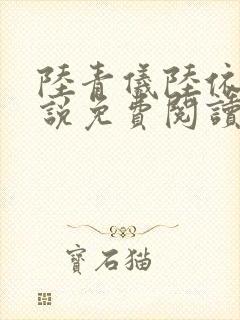 陸青儀陸依
說免費閱讀
寶石貓